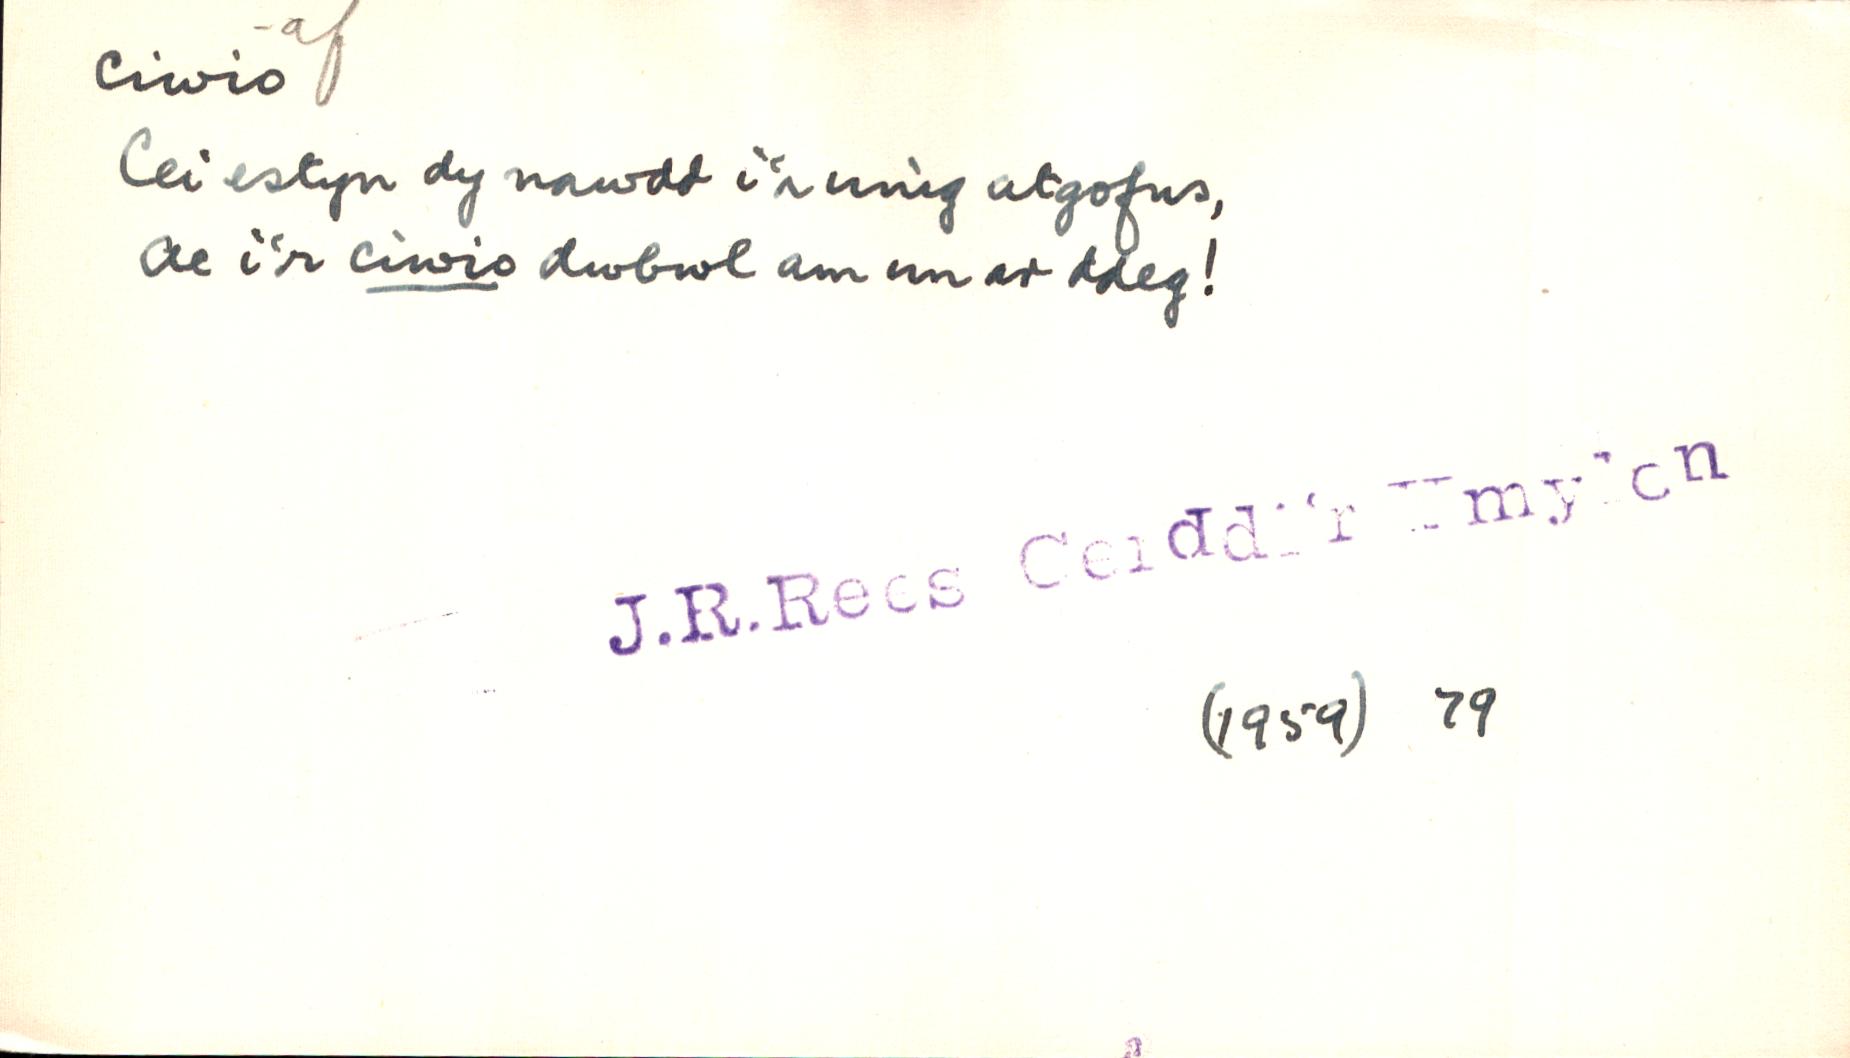 ciwio -af
Cei estyn dy nawdd i'r unig atgofus,
Ac i'r ciwio dwbwl am un ar ddeg!
J.R.Rees Cerddi'r Ymylon
(1959) 79